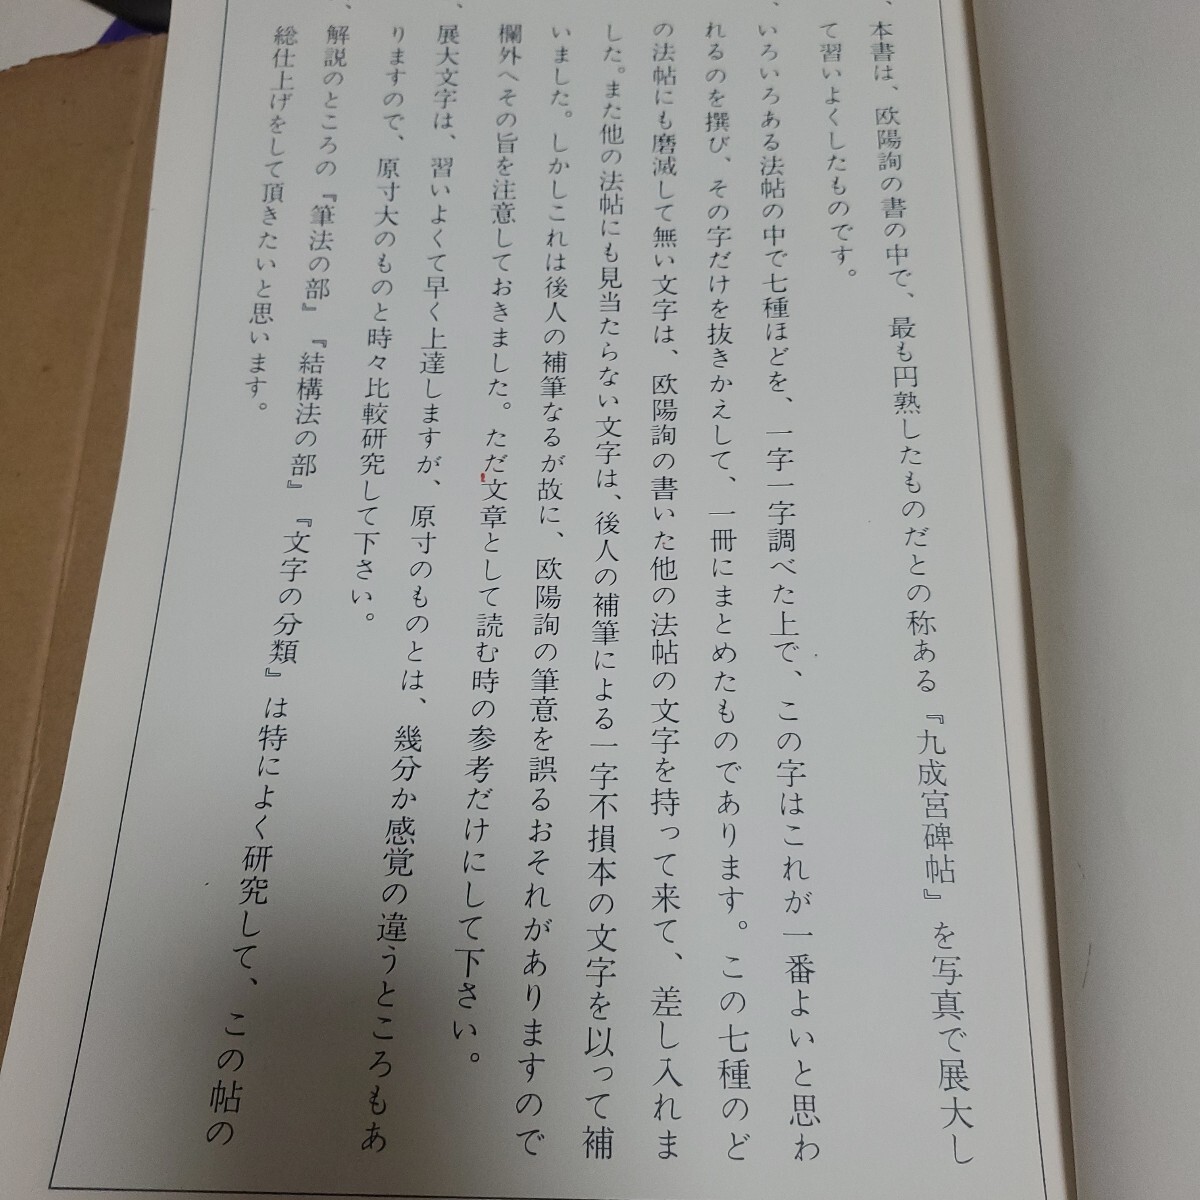 、本書は、欧陽詢の書の中で、最も円熟したものだとの称ある『九成宮碑帖』を写真で展大し
て習いよくしたものです。
、いろいろある法帖の中で七種ほどを、一字一字調べた上で、この字はこれが一番よいと思わ
れるのを撰び、その字だけを抜きかえして、一冊にまとめたものであります。この七種のど
の法帖にも磨滅して無い文字は、欧陽詢の書いた他の法帖の文字を持って来て、差し入れま
した。また他の法帖にも見当たらない文字は、後人の補筆による一字不損本の文字を以って補
いました。しかしこれは後人の補筆なるが故に、欧陽詢の筆意を誤るおそれがありますので
欄外へその旨を注意しておきました。ただ文章として読む時の参考だけにして下さい。
、展大文字は、習いよくて早く上達しますが、原寸のものとは、幾分か感覚の違うところもあ
りますので、原寸大のものと時々比較研究して下さい。
、解説のところの『筆法の部』『結構法の部』『文字の分類』は特によく研究して、この帖の
総仕上げをして頂きたいと思います。